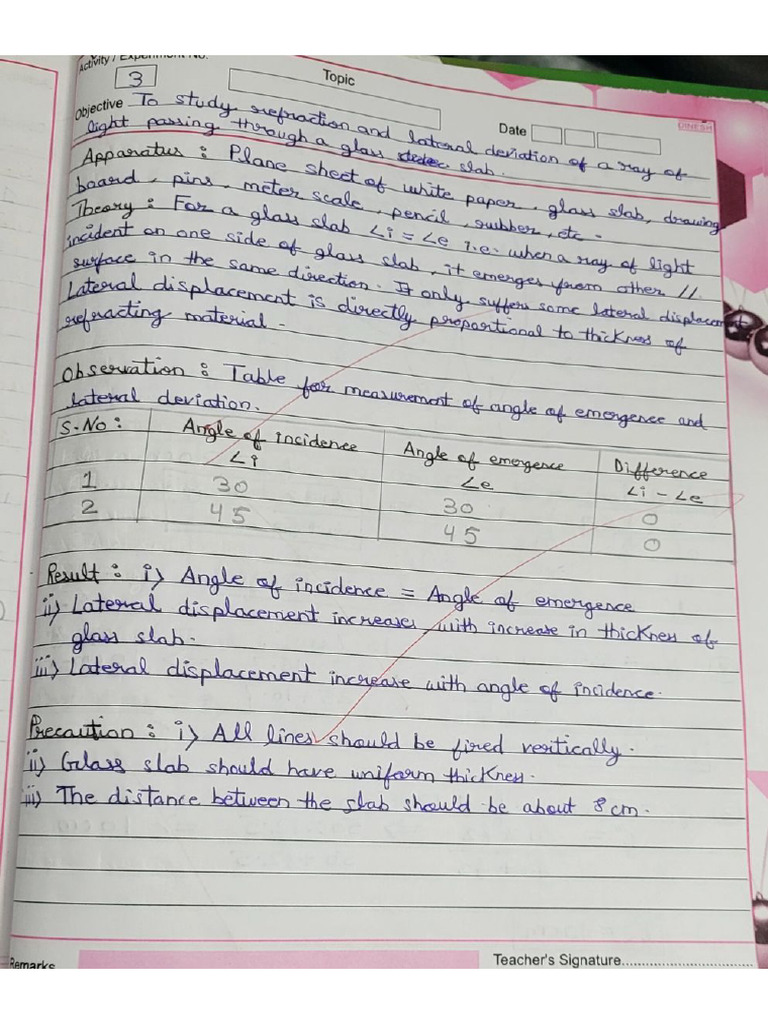 Activity / Experiment No.
3
Topic
Objective To study refraction and lateral deviation of a ray of
Date
DINESH
light passing through a glass slab.
Apparatus : Plane sheet of white paper, glass slab, drawing
board, pins, meter scale, pencil, rubber, etc -
Theory : For a glass slab ∠i = ∠e i.e. when a ray of light
incident on one side of glass slab, it emerges from other //
surface in the same direction. If only suffers some lateral displacment
Lateral displacement is directly proportional to thicknes of
refracting material -
Observation : Table for measurement of angle of emergence and
lateral deviation.
S.No: Angle of incidence ∠i Angle of emergence ∠e Difference ∠i - ∠e
1 30 30 0
2 45 45 0
Result : i) Angle of incidence = Angle of emergence
ii) Lateral displacement increases with increase in thicknes of
glass slab.
iii) Lateral displacement increase with angle of incidence.
Precaution : i) All lines should be fired vertically.
ii) Glass slab should have uniform thicknes.
iii) The distance between the slab should be about 8 cm.
Remarks
Teacher's Signature